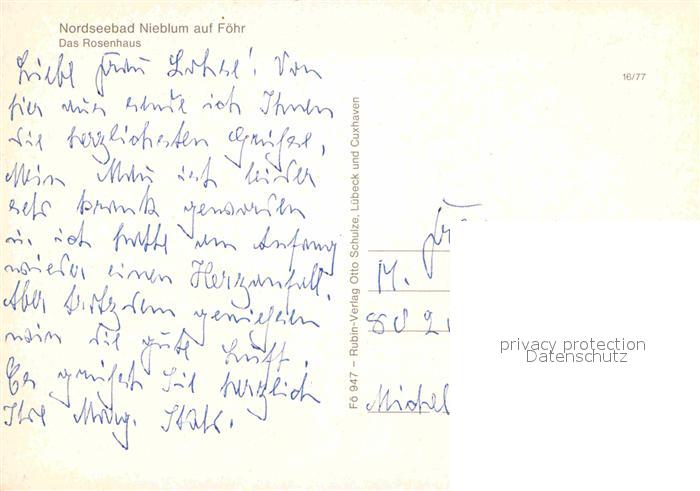 Nordseebad Nieblum auf Föhr
Das Rosenhaus
16/77
Liebe Frau Lohse! Von
hier aus sende ich Ihnen
die herzlichsten Grüße,
Mein Mann ist leider
sehr krank geworden
u. ich hatte am Anfang
wieder einen Herzanfall.
Aber trotzdem genießen
wir die gute Luft.
Es grüßt Sie herzlich
Ihre Marg.
Fö 947 – Rubin-Verlag Otto Schulze, Lübeck und Cuxhaven
M.
802
Michel
privacy protection
Datenschutz